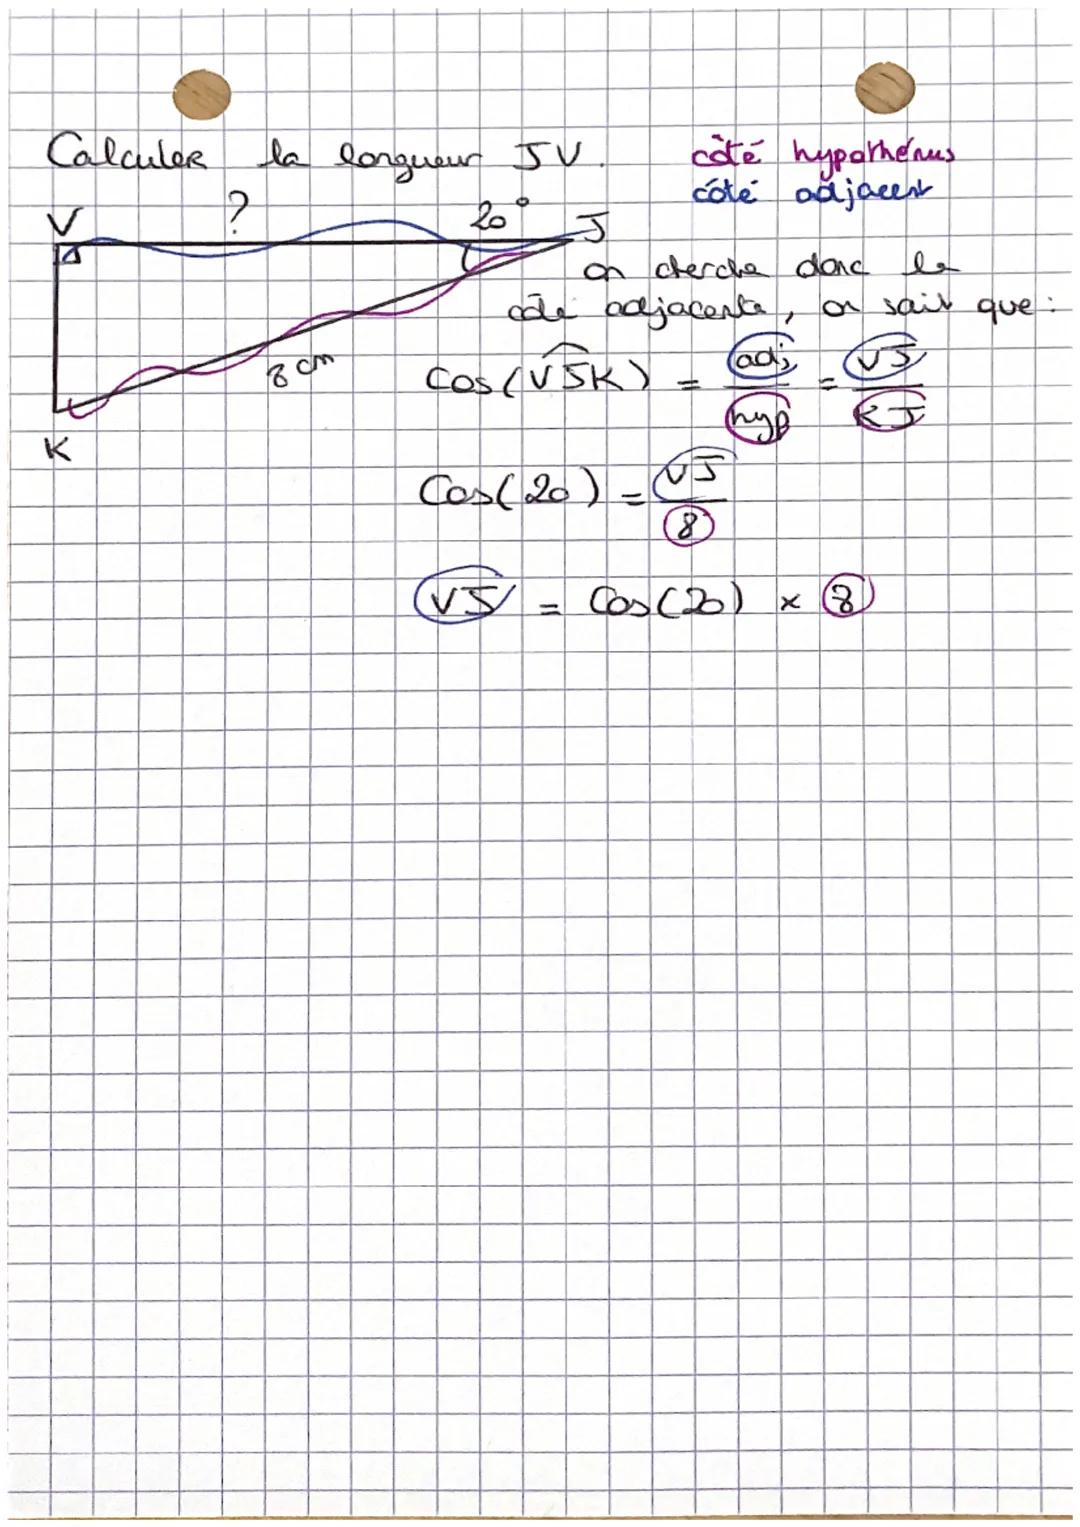 Calculer la longueur JV.
côté hypothénus
côté adjacent
V ? 20° J
on cherche donc le
côté adjacente, on sait que :
8 cm
cos(VJK) = adj/hyp = VJ/KJ
K
Cos(20) = VJ/8
VJ = Cos(20) × 8